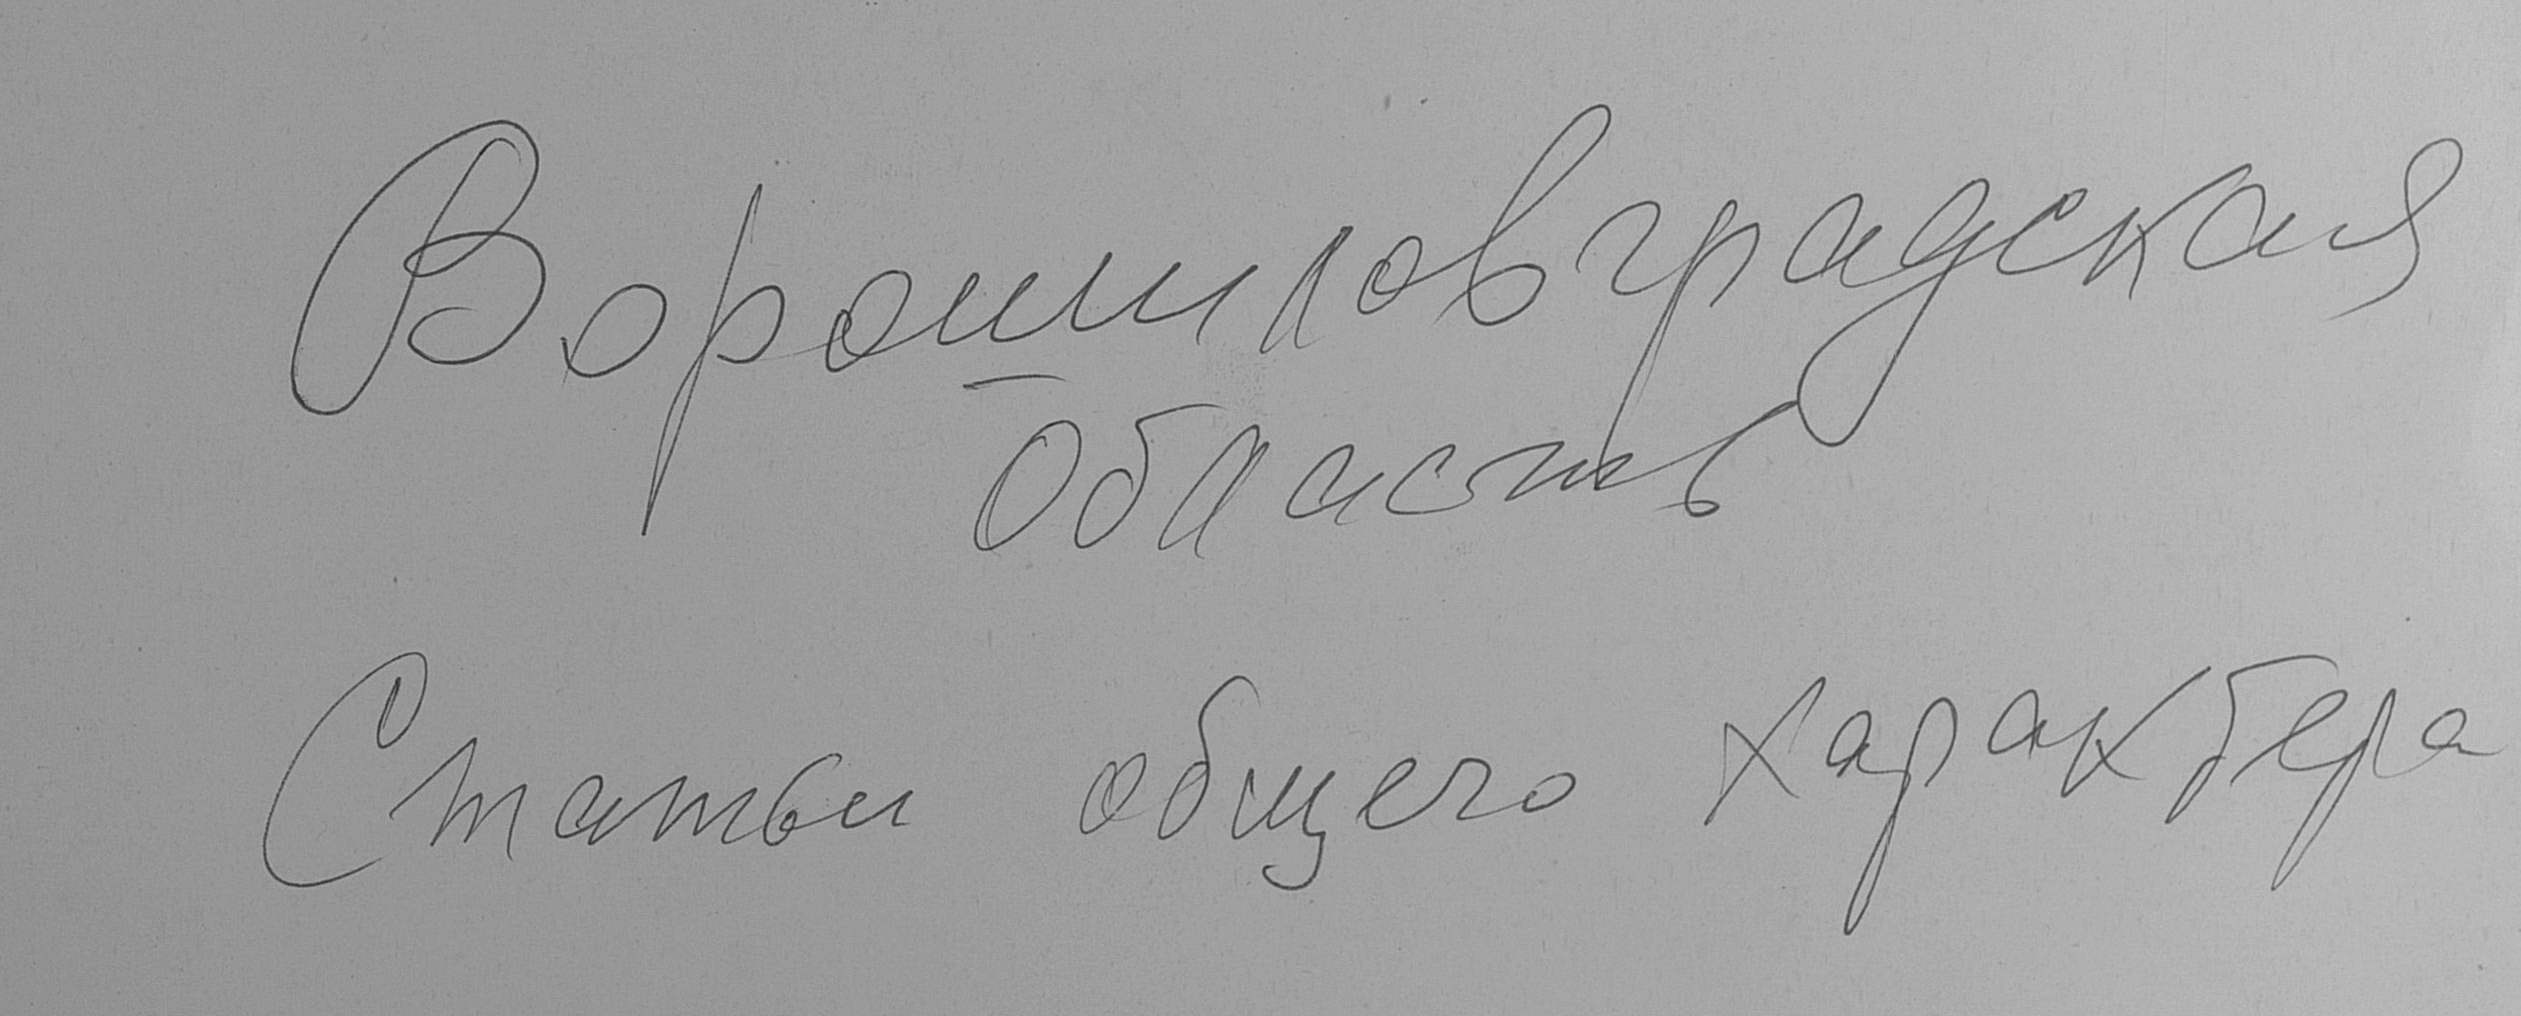 Ворошиловградская
область
Статьи общего характера